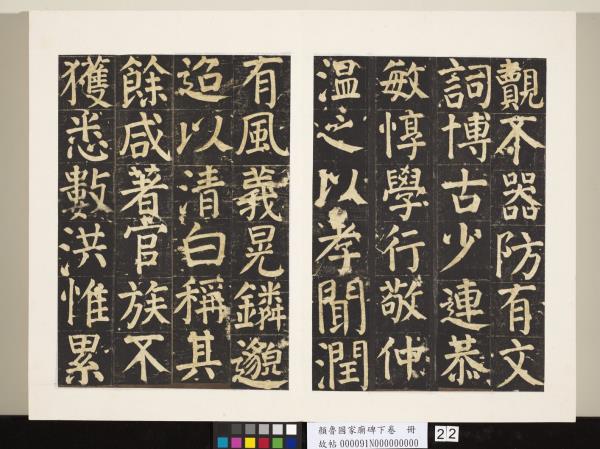 覿不器防有文
詞博古少連恭
敏惇學行敬仲
溫之以孝聞潤
有風義晃鏻邈
迢以清白稱其
餘咸著官族不
獲悉數洪惟累
顏魯國家廟碑下卷 冊
故帖 000091N000000000
22